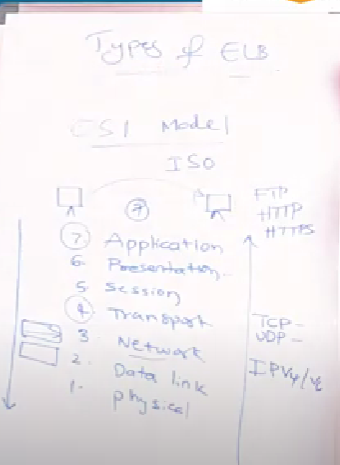 Types of ELB
OSI Model
ISO
7
FTP
HTTP
HTTPS
7 Application
6. Presentation..
5. Session
4. Transport
3. Network
2. Data link
1. physical
TCP -
UDP -
IPV4/V6